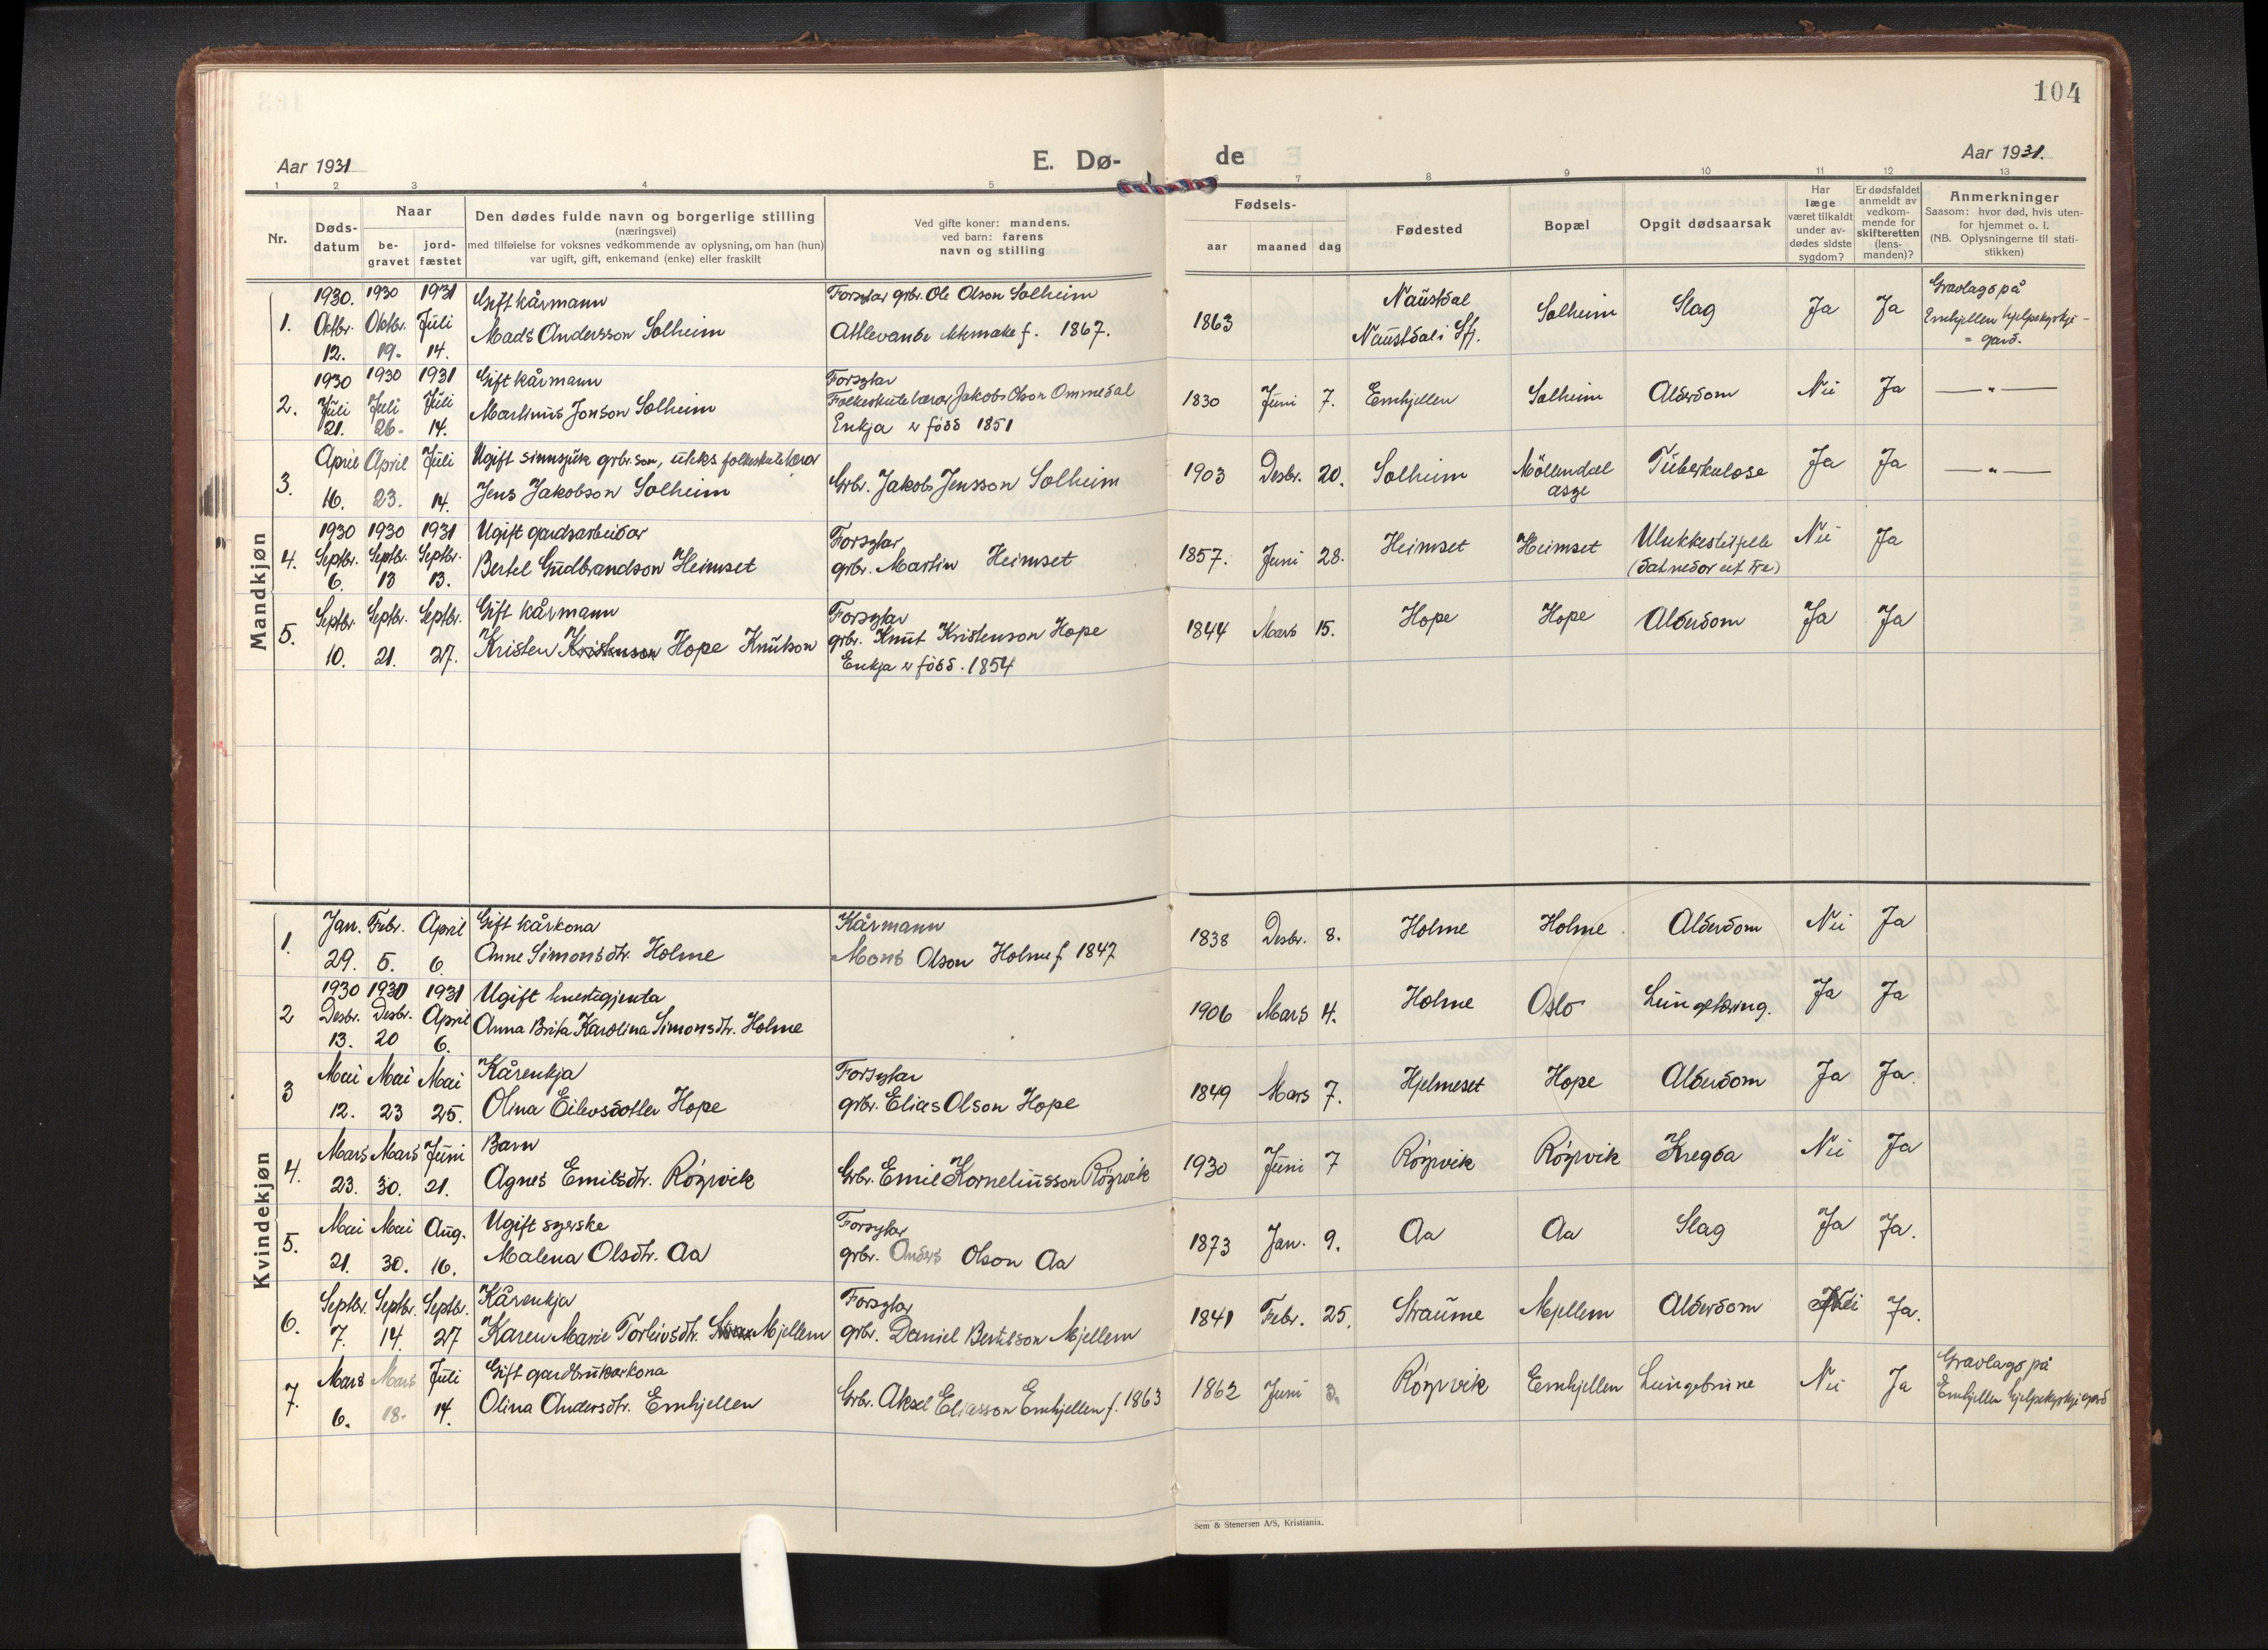 104
Aar 1931
E. Dø-
de
Aar 1931.
1 2 3 4 5 7 8 9 10 11 12 13
Nr.
Døds-
datum
Naar
be-
gravet
jord-
fæstet
Den dødes fulde navn og borgerlige stilling
(næringsvei)
med tilføielse for voksnes vedkommende av oplysning, om han (hun)
var ugift, gift, enkemand (enke) eller fraskilt
Ved gifte koner: mandens.
ved barn: farens
navn og stilling
Fødsels-
aar maaned dag
Fødested
Bopæl
Opgit dødsaarsak
Har
læge
været tilkaldt
under av-
dødes sidste
sygdom?
Er dødsfaldet
anmeldt av
vedkom-
mende for
skifteretten
(lens-
manden)?
Anmerkninger
Saasom: hvor død, hvis uten-
for hjemmet o. l.
(NB. Oplysningerne til stati-
stikken)
Mandkjøn
1930. 1930 1931 Gift kårmann Forsytar grbr. Ole Olson Solheim Naustdal Gravlagd på
1. Oktbr. Oktbr. Juli Mads Andersson Solheim Attlevande ektemake f. 1867. 1863 Naustdal i Sfj. Solheim Slag Ja Ja Emhjellen hjelpekyrkje-
12. 19. 14. = gard.
1930 1930 1931 Gift kårmann Forsytar
2. Juli Juli Juli Martinus Jonson Solheim Folkeskulelærar Jakob Olson Ommedal 1830 Juni 7. Emhjellen Solheim Alderdom Nei Ja — " —
21. 26. 14. Enkja er fødd 1851
April April Juli Ugift sinnsjuk grbr. son, uteks folkeskulelærar
3. 16. 23. 14. Jens Jakobson Solheim Grbr. Jakob Jensson Solheim 1903 Desbr. 20. Solheim Möllendal Tuberkulose Ja Ja — " —
asyl
1930 1930 1931 Ugift gardsarbeidar Forsytar
4. Septbr. Septbr. Septbr. Bertel Gudbrandson Heimset grbr. Martin Heimset 1857. Juni 28. Heimset Heimset Ulukkestilfelle Nei Ja
6. 13 13. (datt nedor eit tre)
Septbr. Septbr. Septbr. Gift kårmann Forsytar
5. 10. 21. 27. Kristen Kristenson Hope Knutson grbr. Knut Kristenson Hope 1844 Mars 15. Hope Hope Alderdom Ja Ja
Enkja er fødd. 1854
Kvindekjøn
Jan. Febr. April Gift kårkona Kårmann
1. 29. 5. 6. Anne Simonsdtr. Holme Mons Olson Holme f 1847 1838 Desbr. 8. Holme Holme Alderdom Nei Ja
1930 1930 1931 Ugift hushaldgjenta
2 Desbr. Desbr. April Anna Brita Karolina Simonsdtr. Holme 1906 Mars 4. Holme Oslo Lungetæring. Ja Ja
13. 20 6.
Mai Mai Mai Kårenkja Forsytar
3 12. 23 25. Olina Eilevsdotter Hope grbr. Elias Olson Hope 1849 Mars 7. Hjelmeset Hope Alderdom Ja Ja.
Mars Mars Juni Barn
4. 23. 30. 21. Agnes Emilsdtr. Röyrvik Grbr. Emil Korneliusson Röyrvik 1930 Juni 7 Röyrvik Röyrvik Kregda Nei Ja
Mai Mai Aug. Ugift syerske Forsytar
5. 21. 30. 16. Malena Olsdtr. Aa grbr. Anders Olson Aa 1873 Jan. 9. Aa Aa Slag Ja Ja.
Septbr. Septbr. Septbr. Kårenkja Forsytar
6. 7. 14. 27 Karen Marie Torleivsdtr. Mjellem grbr. Daniel Bertelson Mjellem 1841 Febr. 25. Straume Mjellem Alderdom Nei Ja.
Mars Mars Juli Gift gardbrukarkona Gravlagd på
7. 6. 18. 14. Olina Andersdtr. Emhjellen Grbr. Aksel Eliasson Emhjellen f. 1863 1862 Juni 3. Röyrvik Emhjellen Lungebrune Nei Ja Emhjellen hjelpekyrkjegard
Sem & Stenersen A/S, Kristiania.